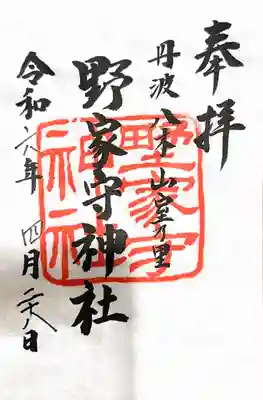 奉拝
丹波 八木 山室乃里
野家守神社
令和六年 四月二十八日
野家守
神社